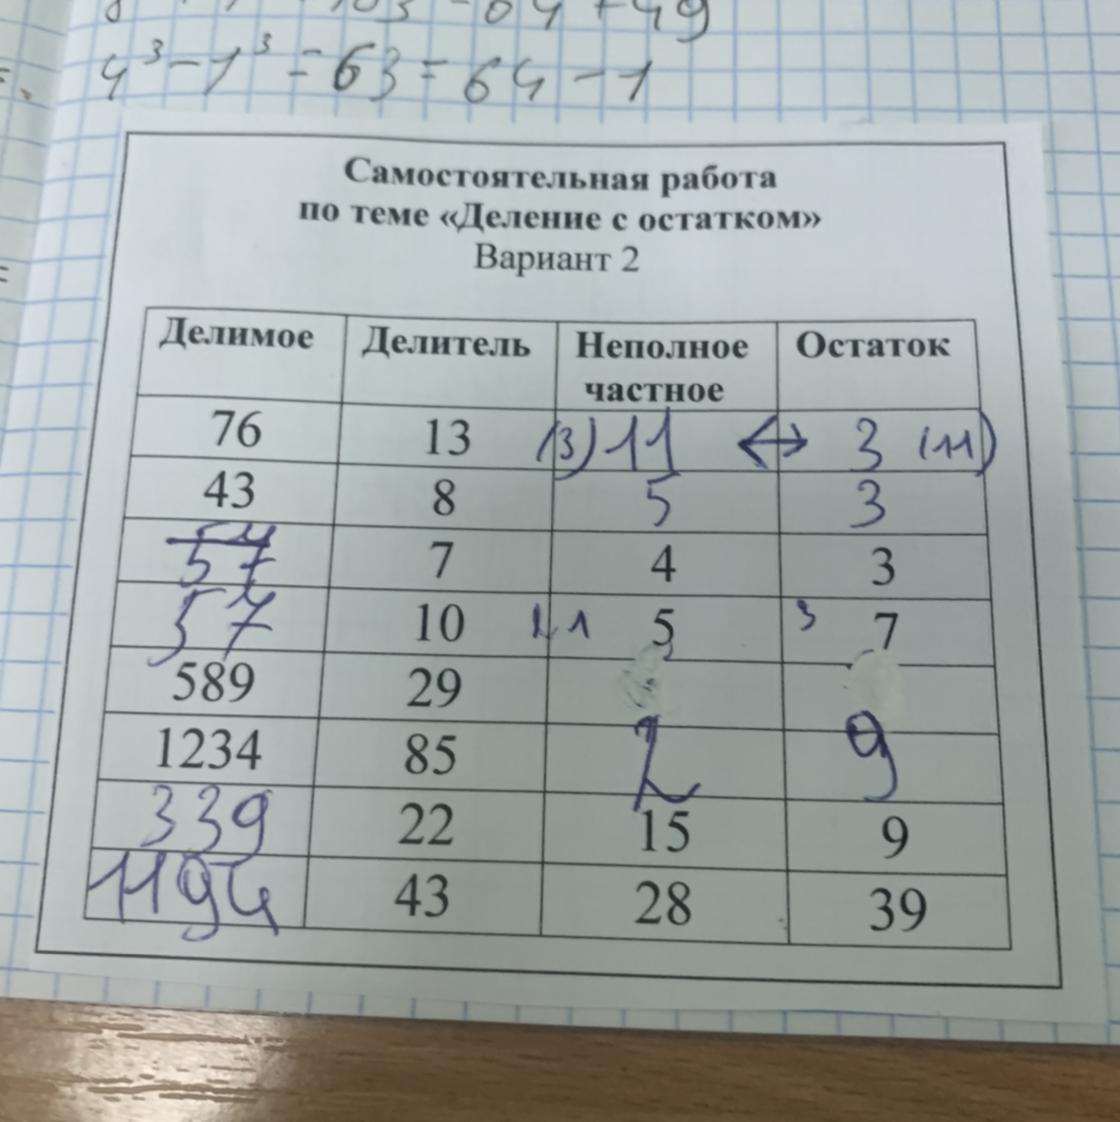 4³-1³=63=64-1
Самостоятельная работа
по теме «Деление с остатком»
Вариант 2
Делимое Делитель Неполное частное Остаток
76 13 (3) 11 ↔ 3 (11)
43 8 5 3
57 7 4 3
57 10 5 3 7
589 29
1234 85 2 9
339 22 15 9
1194 43 28 39